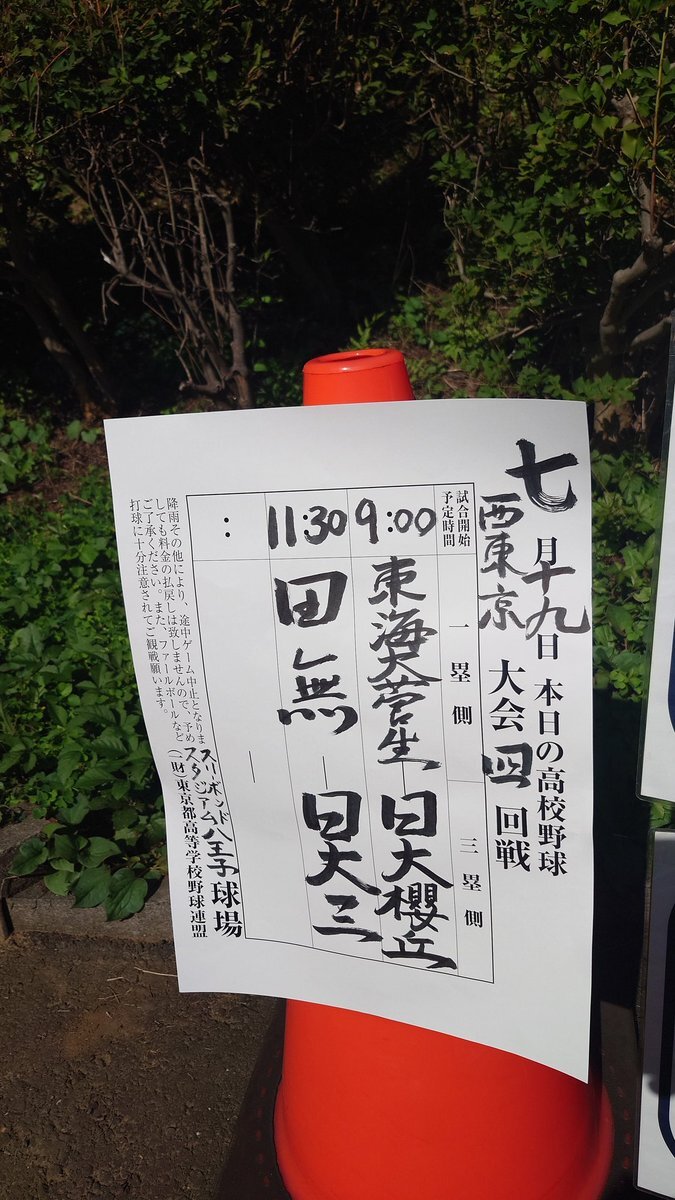 七月十九日 本日の高校野球
西東京大会四回戦
試合開始予定時間 一塁側 三塁側
9:00 東海大菅生 ― 日大櫻丘
11:30 田無 ― 日大三
: ―
スリーボンドスタジアム八王子球場
(一財)東京都高等学校野球連盟
降雨その他により、途中ゲーム中止となりま
しても料金の払戻しは致しませんので、予め
ご了承ください。また、ファールボールなど
打球に十分注意されてご観戦願います。